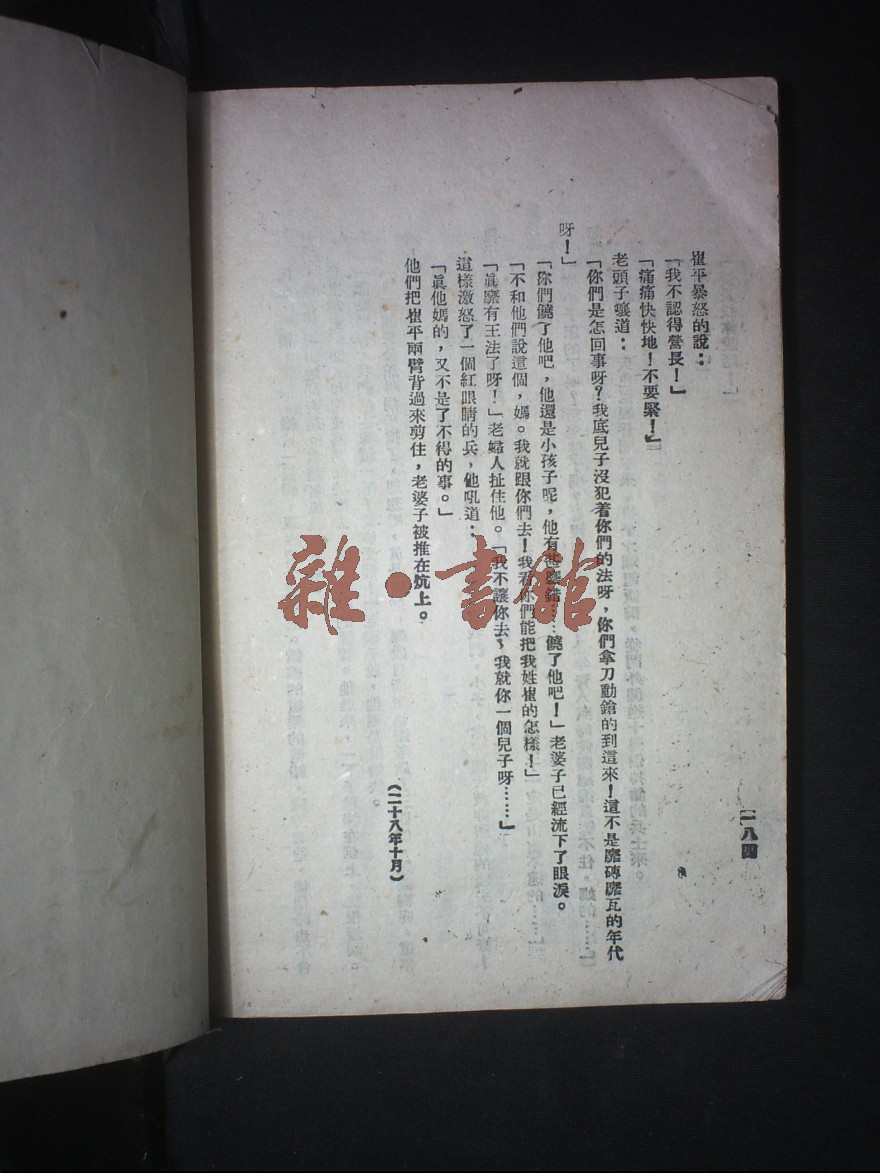 一八四
崔平暴怒的說：
「我不認得營長！」
「痛痛快快地！不要緊！」
老頭子嚷道：
「你們是怎回事呀？我底兒子沒犯着你們的法呀，你們拿刀動鎗的到這來！這不是靡磚靡瓦的年代
呀！」
「你們饒了他吧，他還是小孩子呢，他有爸……饒了他吧！」老婆子已經流下了眼淚。
「不和他們說這個，媽。我就跟你們去！我看你們能把我姓崔的怎樣！」
「眞靡有王法了呀！」老婦人扯住他。「我不讓你去，我就你一個兒子呀……」
這樣激怒了一個紅眼睛的兵，他吼道：
「眞他媽的，又不是了不得的事。」
他們把崔平兩臂背過來剪住，老婆子被推在炕上。
（二十八年十月）
雜·書館